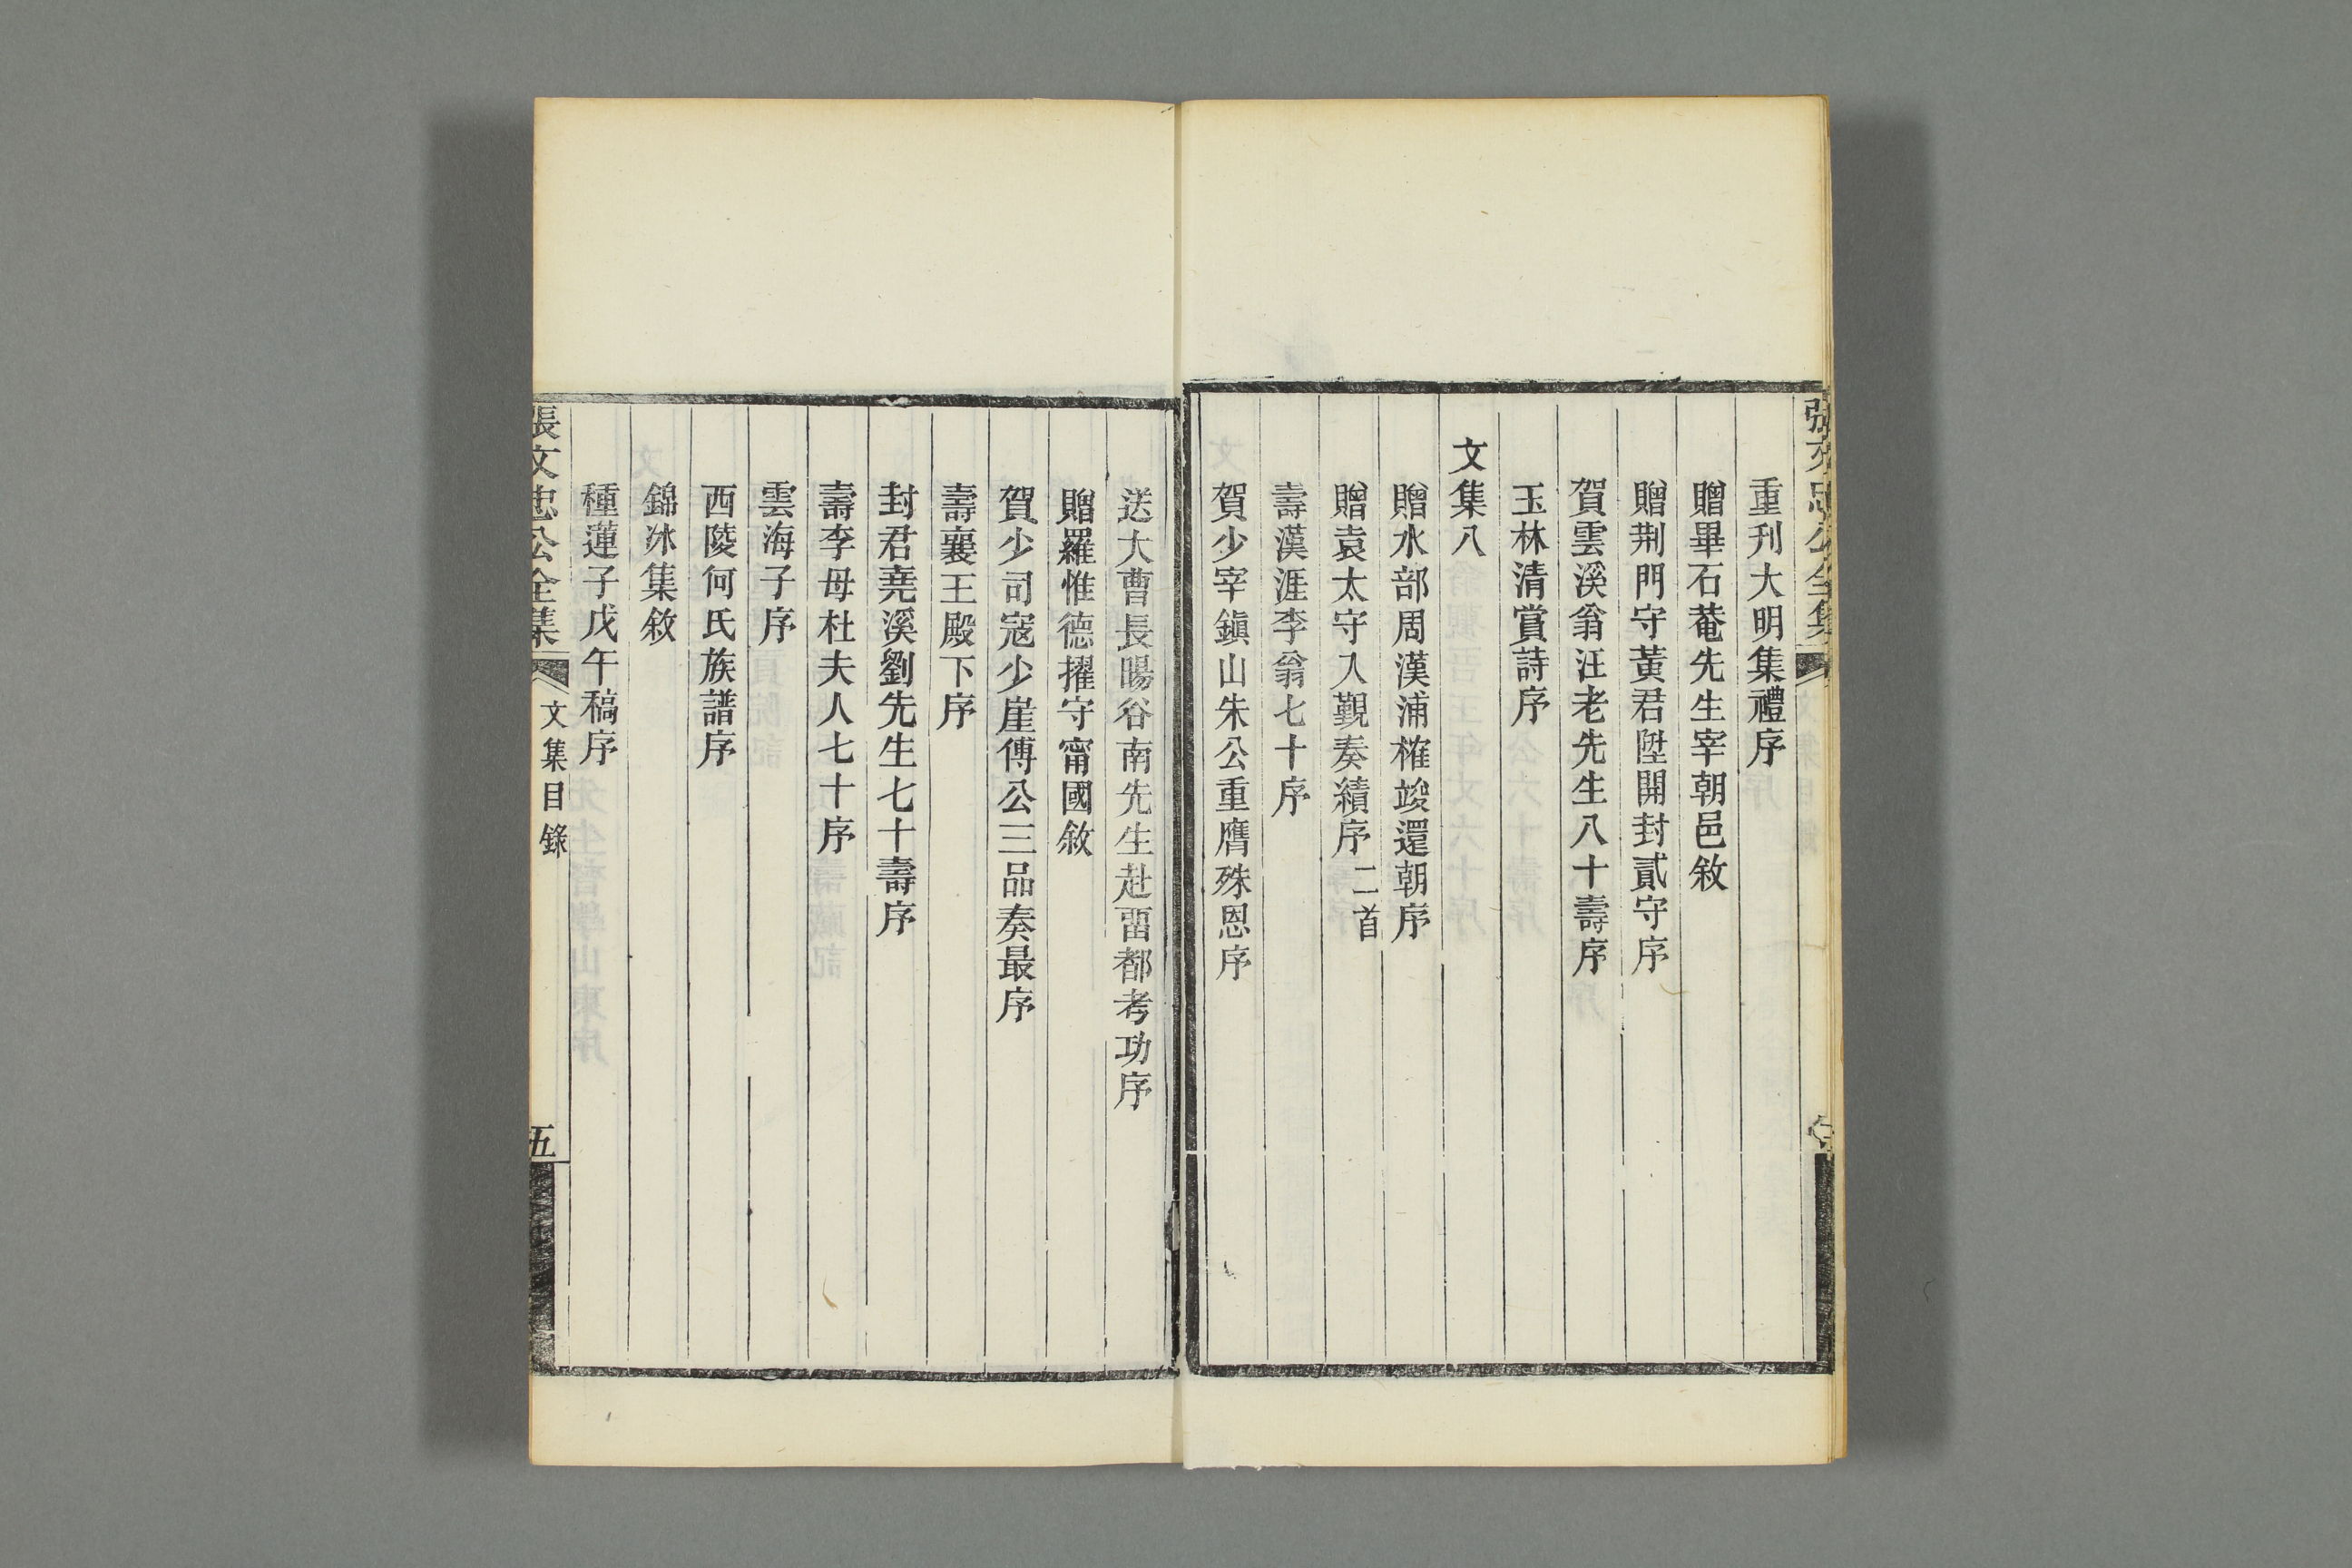 重刊大明集禮序
贈畢石菴先生宰朝邑敘
贈荆門守黃君陞開封貳守序
賀雲溪翁汪老先生八十壽序
玉林清賞詩序
文集八
贈水部周漢浦榷竣還朝序
贈袁太守入覲奏績序二首
壽漢涯李翁七十序
賀少宰鎮山朱公重膺殊恩序
送大曹長暘谷南先生赴畱都考功序
贈羅惟德擢守甯國敘
賀少司寇少崖傅公三品奏最序
壽襄王殿下序
封君堯溪劉先生七十壽序
壽李母杜夫人七十序
雲海子序
西陵何氏族譜序
錦冰集敘
種蓮子戊午稿序
張文忠公全集
文集目錄
五